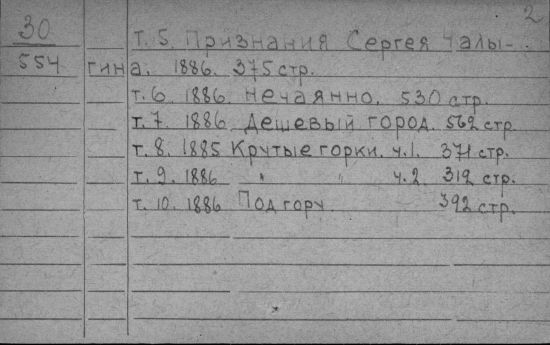 2
30
554
т. 5. Признания Сергея Чалы-
гина. 1886. 375 стр.
т. 6. 1886. Нечаянно. 530 стр.
т. 7. 1886. Дешевый город. 562 стр.
т. 8. 1885 Крутые горки. ч.1. 371 стр.
т. 9. 1886 " " ч.2. 312 стр.
т. 10. 1886 Под гору. 392 стр.